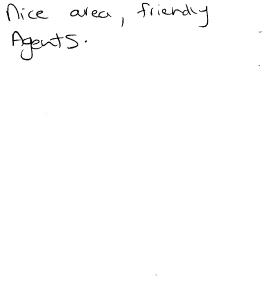 Nice area, friendly
Agents.